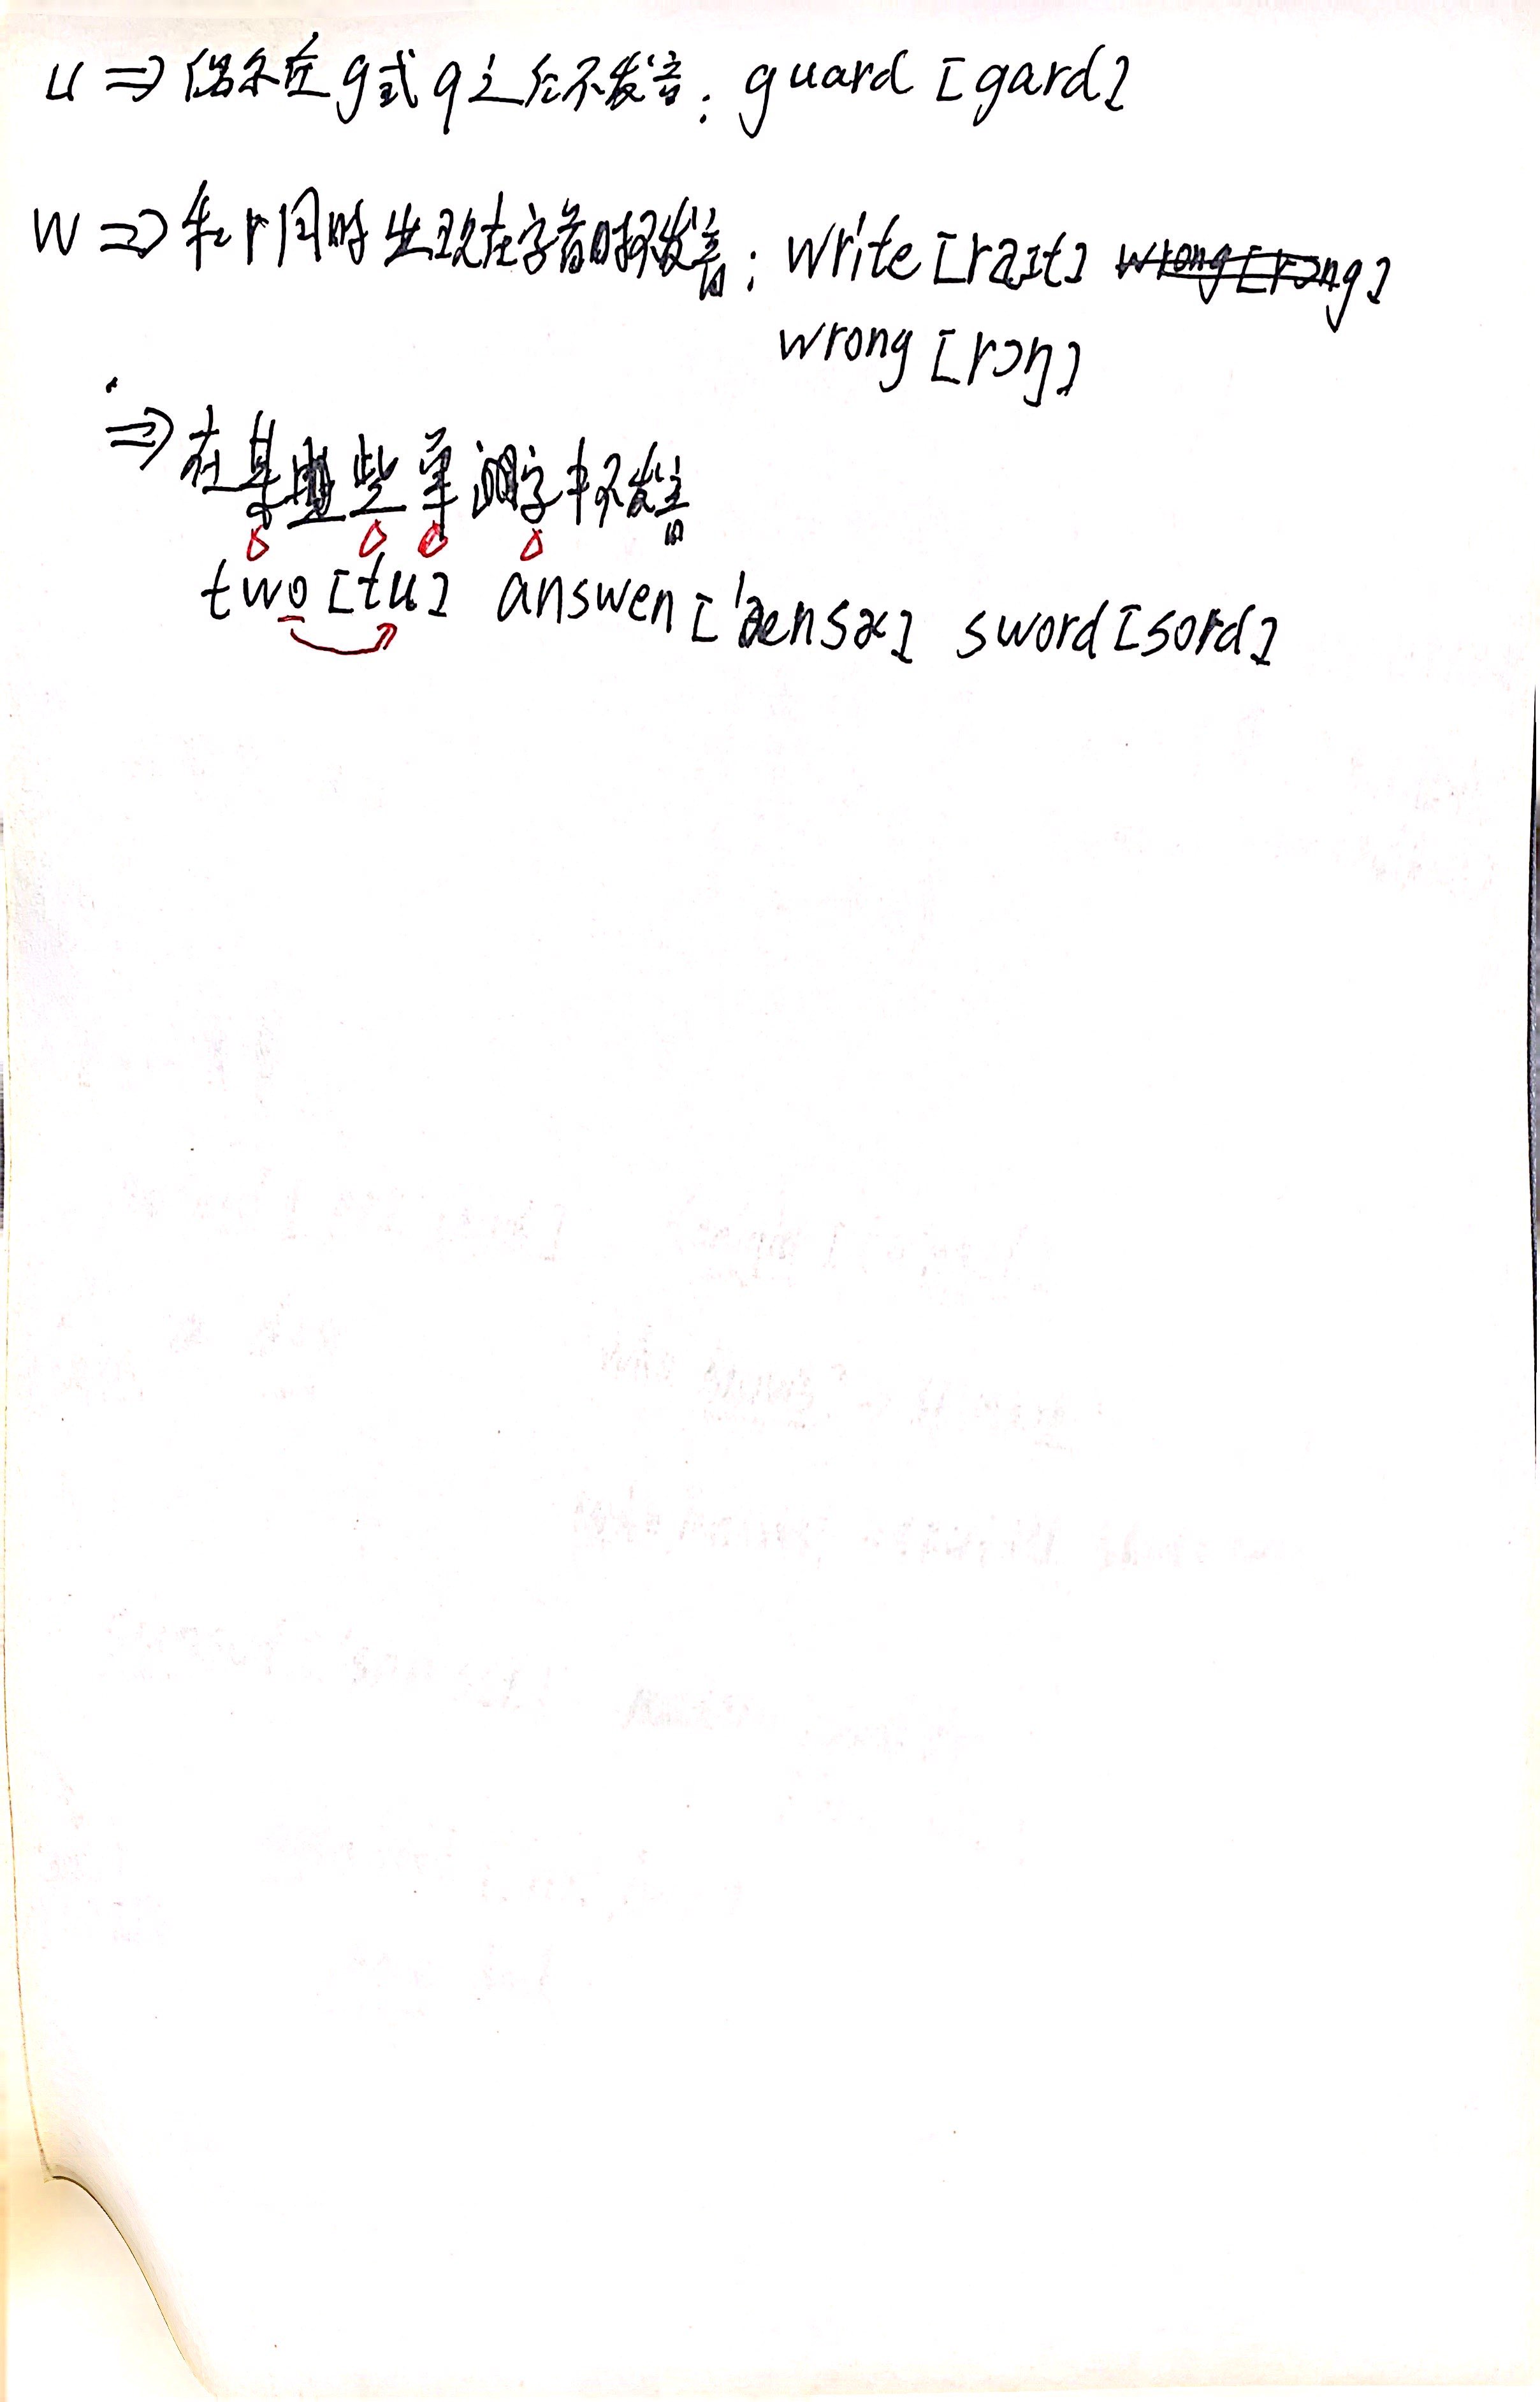 u ⇒ 偶尔在g或q之后不发音: guard [gard]
w ⇒ 和r同时出现在字首时不发音: write [raɪt] wrong [rɔng]
wrong [rɔŋ]
⇒ 在某些单词字中不发音
two [tu] answer ['ænsɚ] sword [sord]